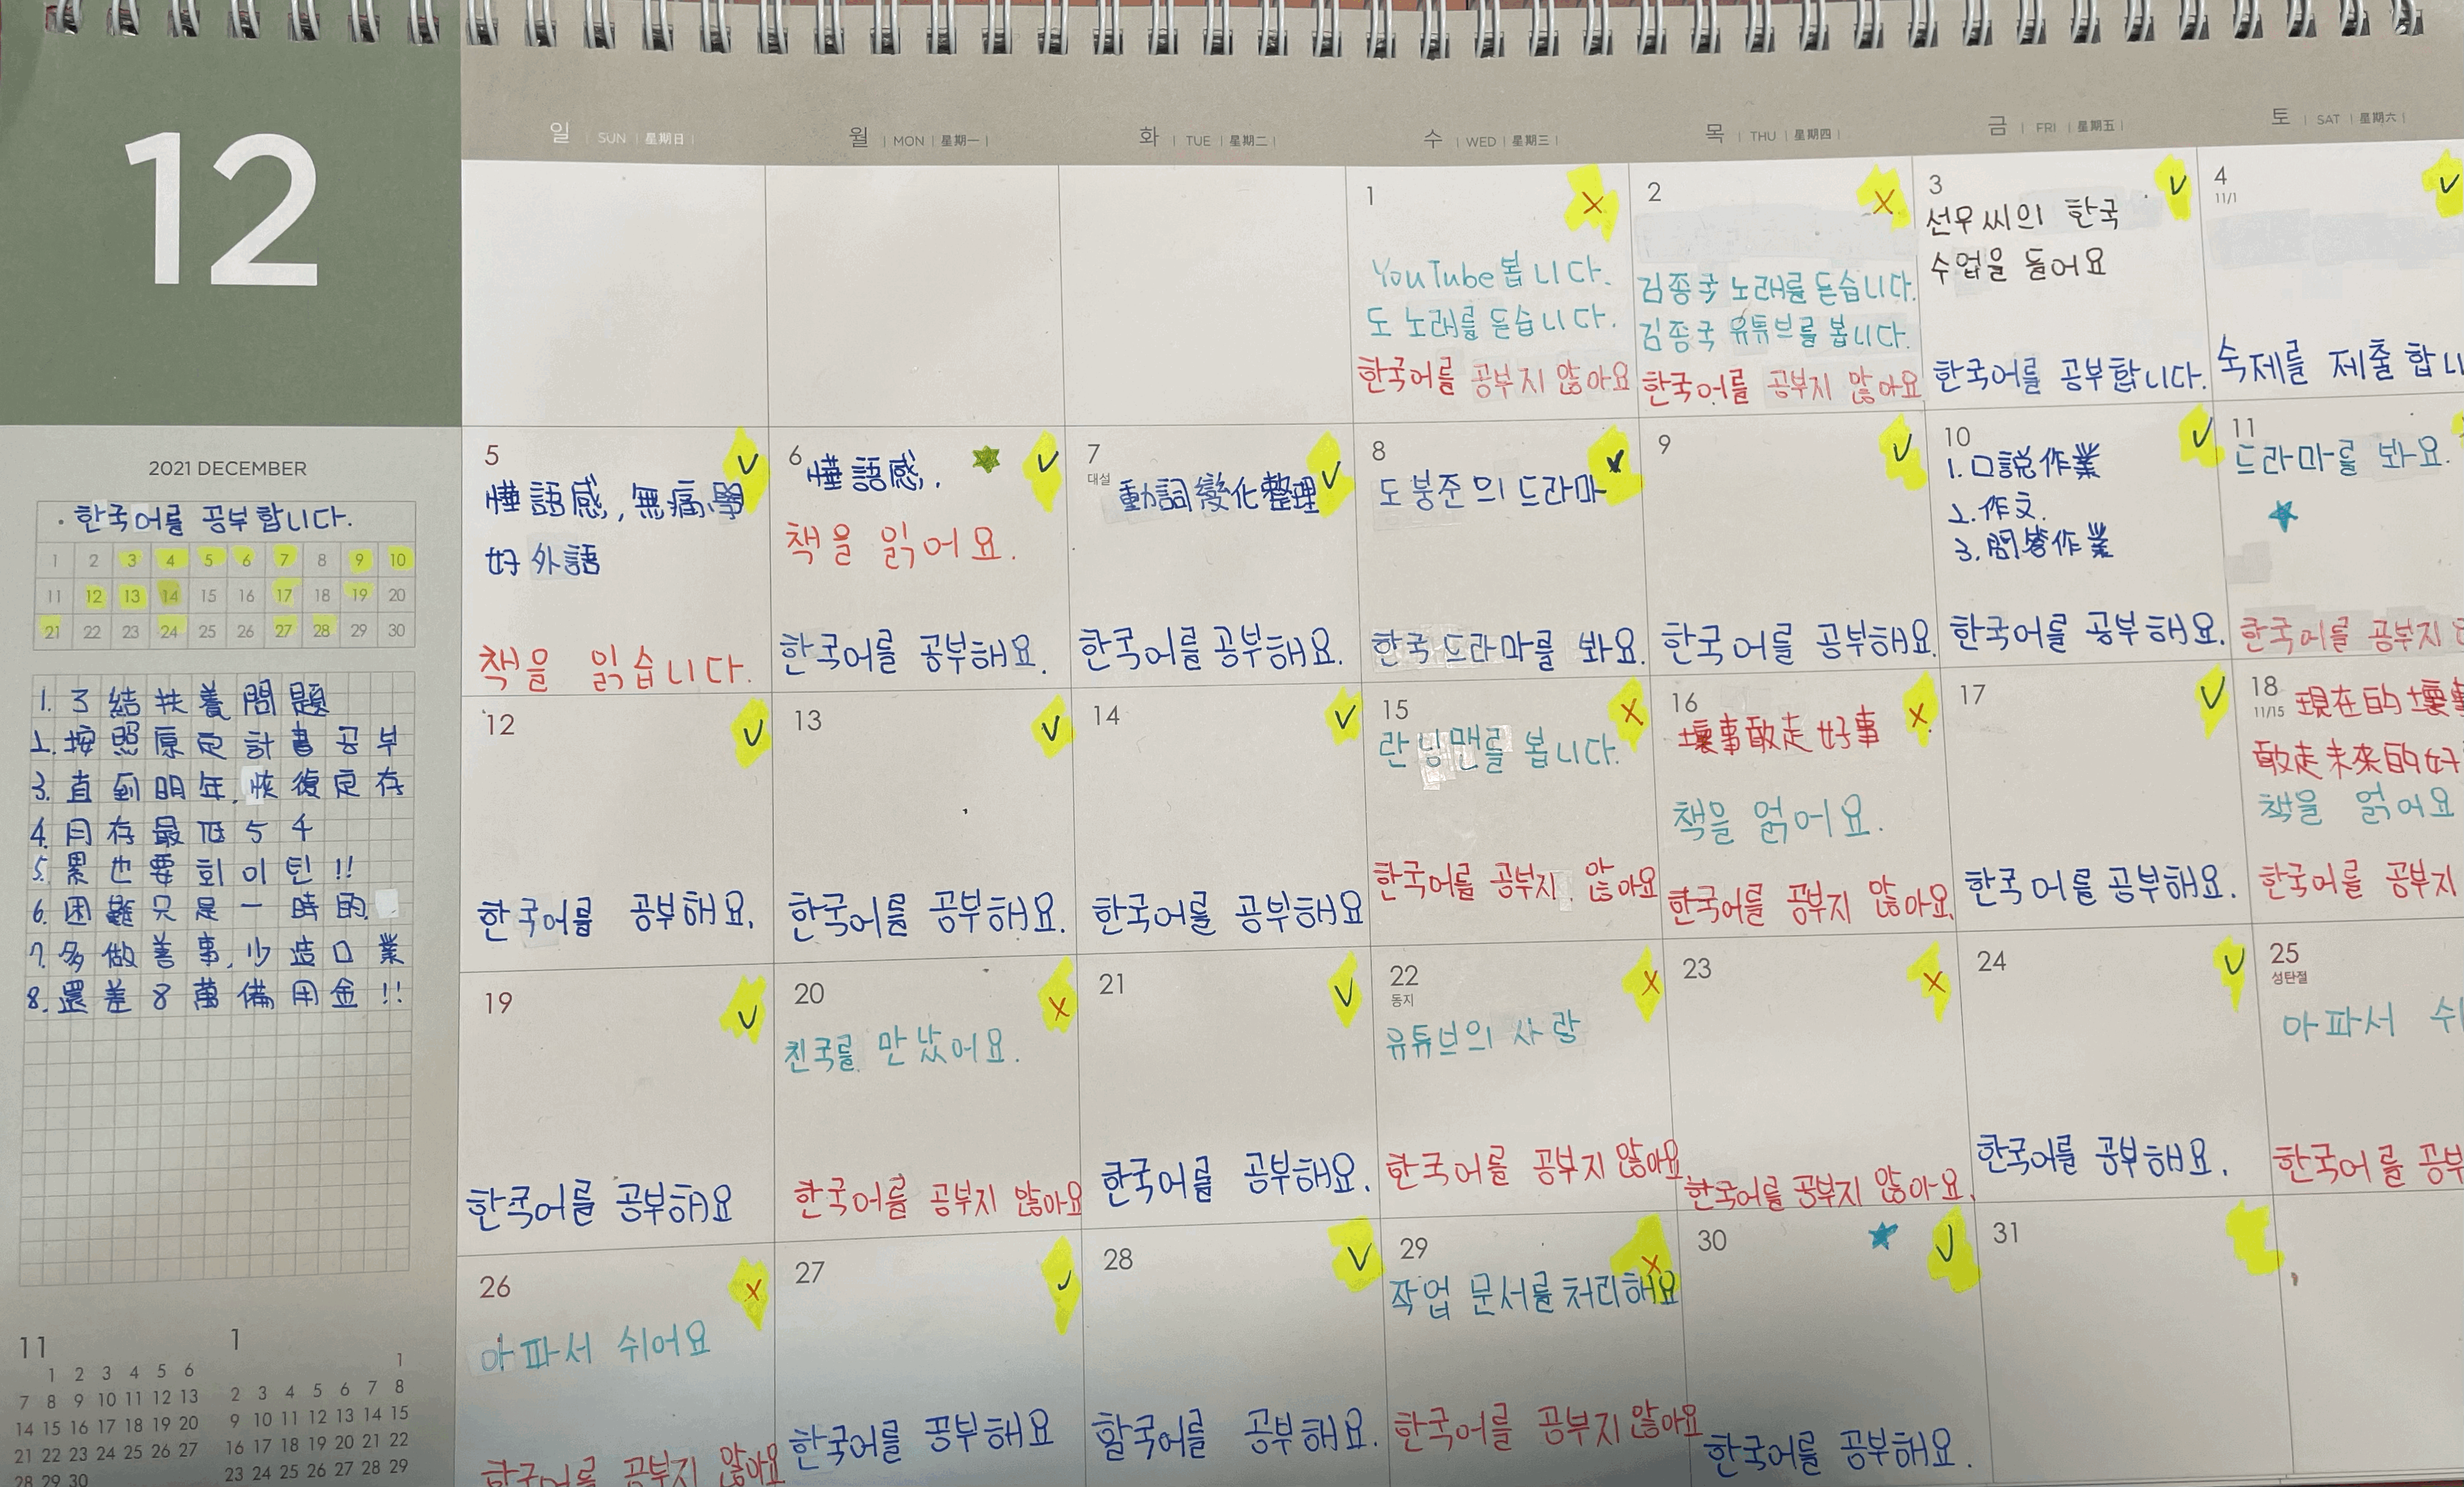 12
일 | SUN | 星期日 |
월 | MON | 星期一 |
화 | TUE | 星期二 |
수 | WED | 星期三 |
목 | THU | 星期四 |
금 | FRI | 星期五 |
토 | SAT | 星期六 |
1
X
YouTube 봅니다.
도 노래를 듣습니다.
한국어를 공부지 않아요
2
X
김종국 노래를 듣습니다.
김종국 유튜브를 봅니다.
한국어를 공부지 않아요
3
선우씨의 한국
수업을 들어요
한국어를 공부합니다.
4
11/1
숙제를 제출합니
2021 DECEMBER
· 한국어를 공부합니다.
1 2 3 4 5 6 7 8 9 10
11 12 13 14 15 16 17 18 19 20
21 22 23 24 25 26 27 28 29 30
1. 了結扶養問題
2. 按照原定計書공부
3. 直到明年,恢復定存
4. 月存最低5千
5. 累也要회이틴!!
6. 困難只是一時的
7. 多做善事,少造口業
8. 還差8萬備用金!!
5
語感,無痛學
好外語
책을 읽습니다.
6
語感.
책을 읽어요.
한국어를 공부해요.
7
대설
動詞變化整理
한국어를 공부해요.
8
도봉준의 드라마
한국 드라마를 봐요.
9
한국어를 공부해요.
10
1. 口說作業
2. 作文.
3. 問答作業
한국어를 공부해요.
11
드라마를 봐요.
한국어를 공부지
12
한국어를 공부해요.
13
한국어를 공부해요.
14
한국어를 공부해요
15
X
란닝맨를 봅니다.
한국어를 공부지 않아요
16
X
壞事敢走好事
책을 읽어요.
한국어를 공부지 않아요.
17
한국어를 공부해요.
18
11/15
現在的壞事
敢走未來的好
책을 읽어요
한국어를 공부지
19
한국어를 공부해요
20
X
친국를 만났어요.
한국어를 공부지 않아요
21
한국어를 공부해요.
22
동지
X
유튜브의 사랑
한국어를 공부지 않아요
23
X
한국어를 공부지 않아요.
24
한국어를 공부해요.
25
성탄절
아파서 쉬
한국어를 공부
26
X
아파서 쉬어요
한국어를 공부지 않아요
27
한국어를 공부해요
28
한국어를 공부해요.
29
X
작업 문서를 처리해요
한국어를 공부지 않아요
30
한국어를 공부해요.
31
11
1 2 3 4 5 6
7 8 9 10 11 12 13
14 15 16 17 18 19 20
21 22 23 24 25 26 27
28 29 30
1
1
2 3 4 5 6 7 8
9 10 11 12 13 14 15
16 17 18 19 20 21 22
23 24 25 26 27 28 29